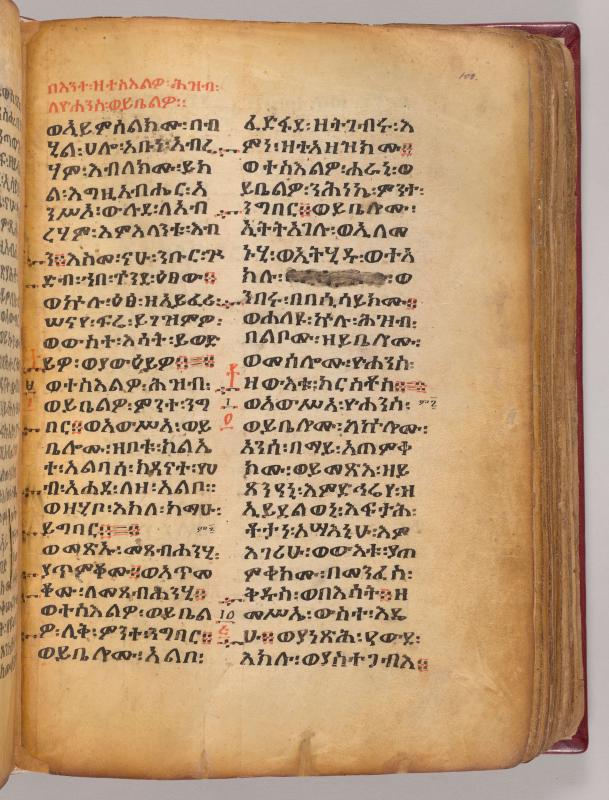 በእንተ፡ዘተስእልዎ፡ሕዝብ፡
ለዮሐንስ፡ወይቤልዎ፡፡
ወኢይምሰልክሙ፡በብ
ሂል፡ሀሎ፡አቡነ፡አብረ
ሃም፡እብለክሙ፡ይክ
ል፡እግዚአብሔር፡አ
ንሥአ፡ውሉደ፡ለአብ
ረሃም፡እምእላንቱ፡እብ
ን፨እስመ፡ናሁ፡ንቡር፡ጕ
ድብ፡ኀበ፡ጕንደ፡ዕፀው፨
ወኵሉ፡ዕፅ፡ዘኢይፈሪ፡
ሠናየ፡ፍሬ፡ይገዝምዎ፡
ወውስተ፡እሳት፡ይወድ
ይዎ፡ወያውዕይዎ፨
ወተስእልዎ፡ሕዝብ፡
ወይቤልዎ፡ምንተ፡ንግ
በር፨ወአውሥአ፡ወይ
ቤሎሙ፡ዘቦቱ፡ክልኤ
ት፡አልባሰ፡ክዳናተ፡የሀ
ብ፡አሐደ፡ለዘ፡አልቦ፡፡
ወዘሂቦ፡እክለ፡ከማሁ፡
ይግበር፨
ወመጽኡ፡መጸብሓንሂ፡
ያጥምቆሙ፨ወአጥመ
ቆሙ፡ለመጸብሓንሂ፨
ወተስእልዎ፡ወይቤል
ዎ፡ሊቅ፡ምንተ፡ንግበር፨
ወይቤሎሙ፡አልቦ፡
108.
ፈድፋደ፡ዘትገብሩ፡እ
ምነ፡ዘተአዘዝክሙ፨
ወተስእልዎ፡ሐራኒ፡ወ
ይቤልዎ፡ንሕነኒ፡ምንተ፡
ንግበር፨ወይቤሎሙ፡
ኢትትአገሉ፡ወኢለመ
ኑሂ፡ወኢትሂዱ፡ወተአ
ከሉ፡ ፡ወ
ንበሩ፡በበሲሳይክሙ፨
ወሐለዩ፡ኵሉ፡ሕዝብ፡
በልቦሙ፡ዘይቤሎሙ፡
ወመሰሎሙ፡ዮሐንስ፡
ዘውእቱ፡ክርስቶስ፨
ወአውሥአ፡ዮሐንስ፡
ወይቤሎሙ፡ለኵሎሙ፡
አንሰ፡በማይ፡አጠምቀ
ክሙ፡ወይመጽእ፡ዘይ
ጸንዕኒ፡እምድኅሬየ፡ዘ
ኢይደልወኒ፡እፍታሕ፡
ቶታነ፡አሣእኒሁ፡እም
እገሪሁ፡ወውእቱ፡ያጠ
ምቀክሙ፡በመንፈስ፡
ቅዱስ፡ወበእሳት፨ዘ
10 መሥኤ፡ውስተ፡እዴ
ሁ፨ወያነጽሕ፡ዓውደ፡
እክሉ፡ወያስተጋብእ፨